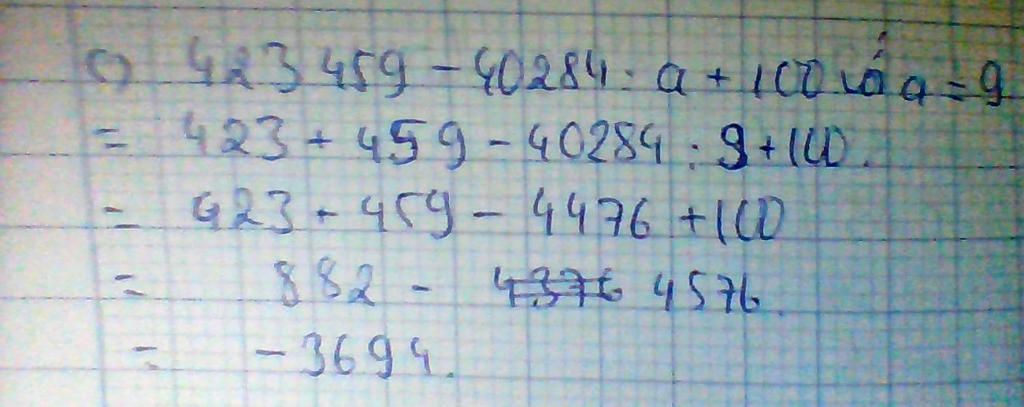 c) 423 459 - 40284 : a + 100 với a = 9
= 423 + 459 - 40284 : 9 + 100.
= 423 + 459 - 4476 + 100
= 882 - 4376 4576.
= -3694.